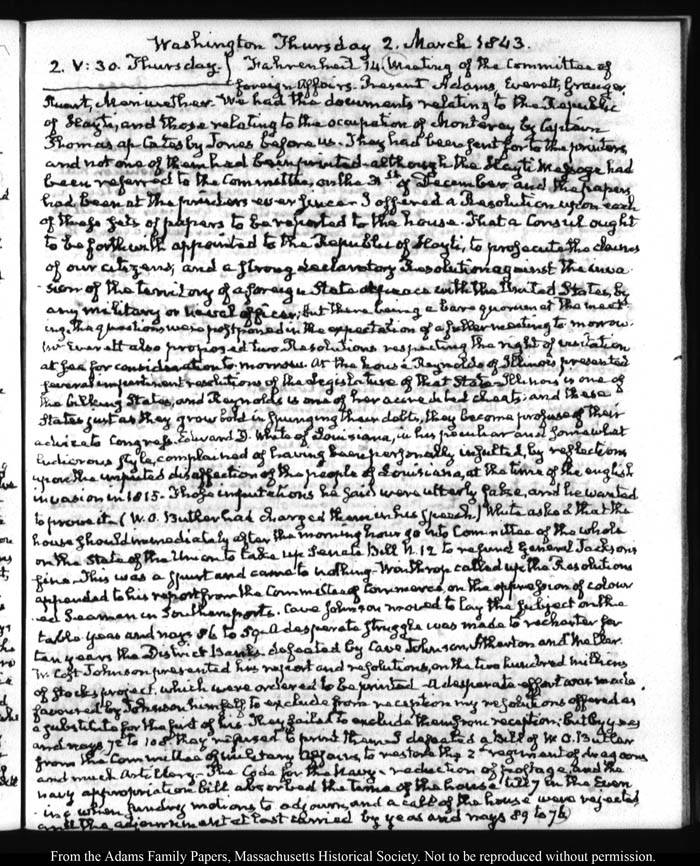 Washington Thursday 2. March 1843.
2. V: 30. Thursday. Fahrenheit 74 Meeting of the Committee of
foreign Affairs. Present Adams, Everett, Granger,
Stuart, Meriwether. We had the documents relating to the Republic
of Hayti, and those relating to the occupation of Monterey by Captain
Thomas ap Catesby Jones before us. They had been sent for to the printers,
and not one of them had been printed although the Hayti Message had
been referred to the Committee, on the 31st of December, and the papers
had been at the printers ever since. I offered a Resolution upon each
of these sets of papers to be reported to the house. That a Consul ought
to be forthwith appointed to the Republic of Hayti, to prosecute the claims
of our citizens; and a strong declaratory Resolution against the inva
sion of the territory of a foreign State at peace with the United States, by
any military or Naval officer; but there being a bare quorum at the meet
ing, the questions were postponed in the expectation of a fuller meeting to morrow.
Mr Everett also proposed two Resolutions respecting the right of visitation
at sea for consideration to-morrow. At the house Reynolds of Illinois presented
several impertinent resolutions of the Legislature of that State. Illinois is one of
the bilking States, and Reynolds is one of her accredited cheats; and these
States just as they grow bold in spunging their debts, they become profuse of their
advice to Congress. Edward D. White of Louisiana, in his peculiar and somewhat
ludicrous style, complained of having been personally insulted, by reflections
upon the imputed disaffection of the people of Louisiana, at the time of the english
invasion in 1815. Those imputations he said were utterly false, and he wanted
to prove it. (W. O. Butler had charged them in his Speech) White asked that the
house should immediately after the morning hour go into Committee of the whole
on the State of the Union to take up Senate Bill N. 12 to refund General Jackson's
fine. This was a spurt and came to nothing. Winthrop called up the Resolutions
appended to his report from the Committee of Commerce, on the oppression of colour
ed Seamen in Southern ports. Cave Johnson moved to lay the subject on the
table yeas and nays 86 to 59. A desperate struggle was made to recharter for
ten years the District Banks. defeated by Cave Johnson, Atherton and Weller.
W. Cost Johnson presented his report and resolutions, on the two hundred millions
of Stocks project, which were ordered to be printed. A desperate effort was made,
favoured by Johnson himself to exclude from reception my resolutions offered as
a substitute for the first of his. They failed to exclude them from reception; but by yeas
and nays 72 to 108 they refused to print them. I defeated a Bill of W. O. Butler
from the Committee of military Affairs, to restore the 2d regiment of dragoons
and much Artillery. The Code for the Navy - reduction of postage, and the
navy appropriation bill absorbed the time of the house till 7 in the Even
ing when sundry motions to adjourn, and a call of the house were rejected
and the adjournment at last carried by yeas and nays 89 to 76
From the Adams Family Papers, Massachusetts Historical Society. Not to be reproduced without permission.